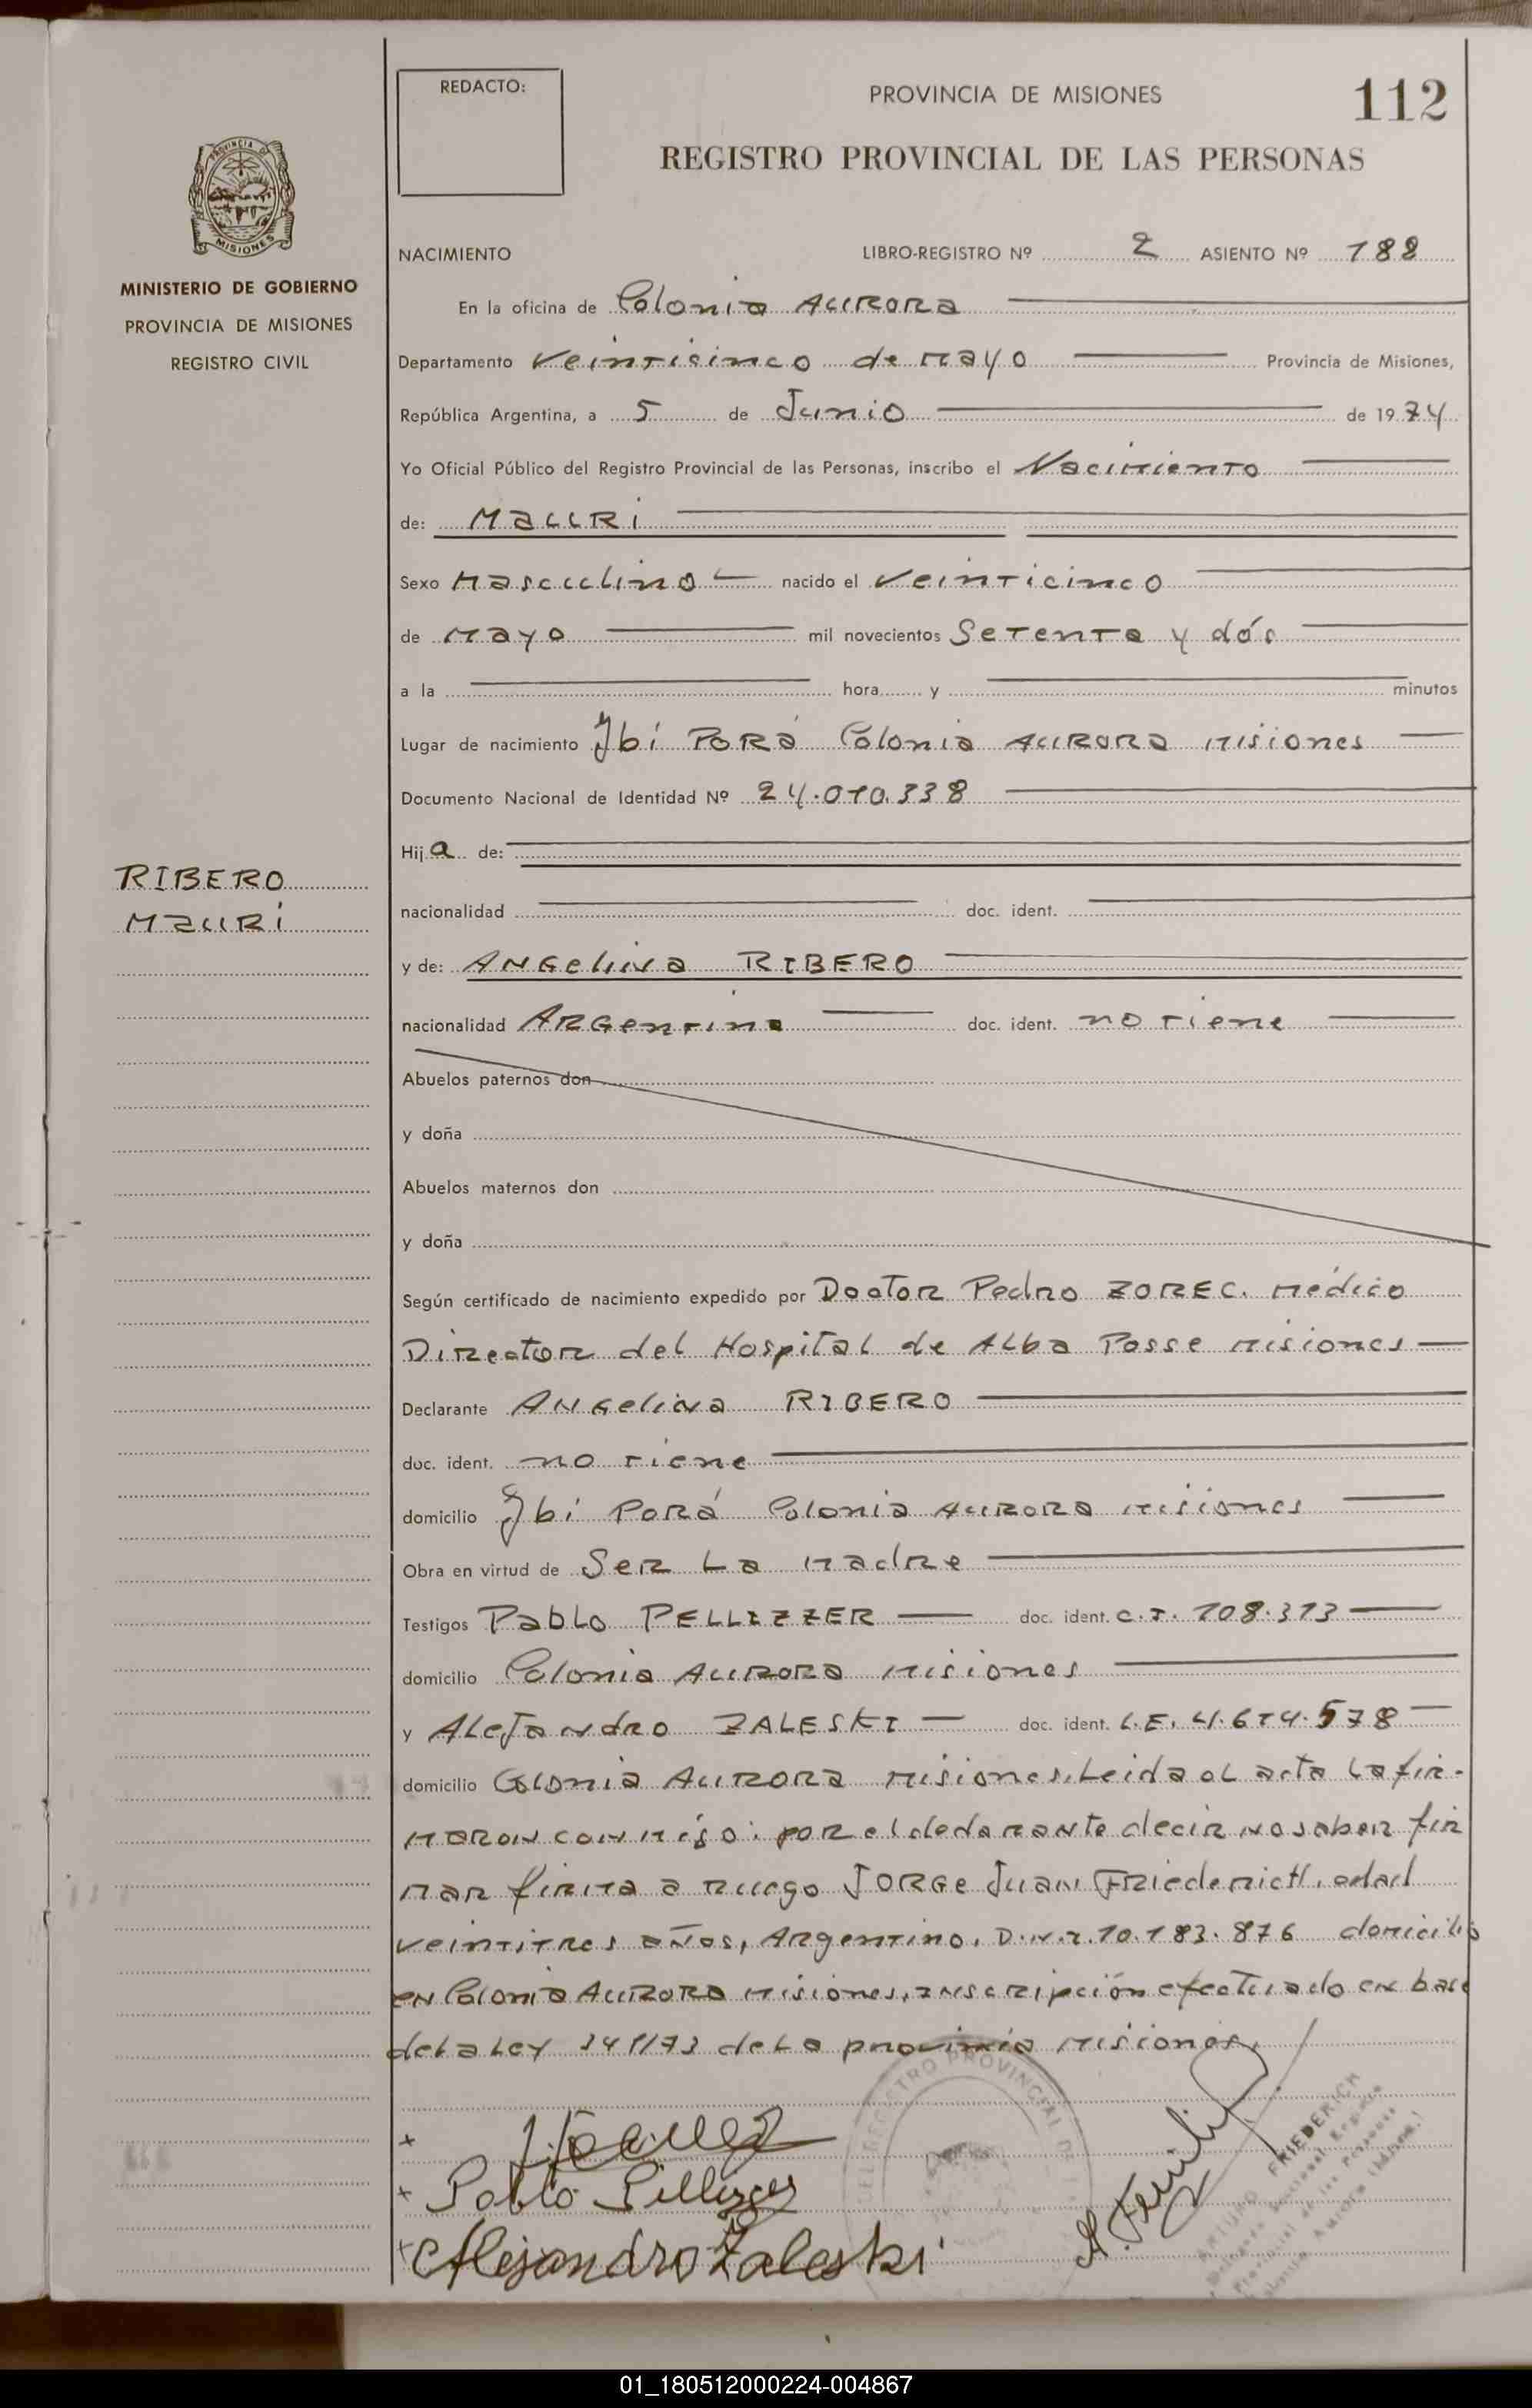 REDACTO:
PROVINCIA DE MISIONES
112
REGISTRO PROVINCIAL DE LAS PERSONAS
PROVINCIA DE
MISIONES
MINISTERIO DE GOBIERNO
PROVINCIA DE MISIONES
REGISTRO CIVIL
NACIMIENTO LIBRO-REGISTRO Nº 2 ASIENTO Nº 188
En la oficina de Colonia AURORA
Departamento Veintisinco de Mayo Provincia de Misiones,
República Argentina, a 5 de Junio de 1974
Yo Oficial Público del Registro Provincial de las Personas, inscribo el Nacimiento
de: MAURI
Sexo Masculino nacido el Veinticinco
de Mayo mil novecientos Setenta y dós
a la hora y minutos
Lugar de nacimiento Ybí PORÁ Colonia AURORA Misiones
Documento Nacional de Identidad Nº 24.010.338
Hija de:
RIBERO
MAURI
nacionalidad doc. ident.
y de: ANGELINA RIBERO
nacionalidad ARGENTINA doc. ident. no tiene
Abuelos paternos don
y doña
Abuelos maternos don
y doña
Según certificado de nacimiento expedido por Doctor Pedro ZOREC. Médico
Director del Hospital de Alba Posse Misiones
Declarante ANGELINA RIBERO
doc. ident. no tiene
domicilio Ybí PORÁ Colonia AURORA Misiones
Obra en virtud de Ser La Madre
Testigos Pablo PELLIZZER doc. ident. C.I. 108.313
domicilio Colonia AURORA Misiones
y Alejandro ZALESKI doc. ident. L.E. 4.614.578
domicilio Colonia AURORA Misiones. Leida el acta la fir-
maron conmigo: por el declarante decir no saber fir
mar firma a ruego JORGE Juan Friederich, edad
veintitres años, Argentino, D.N.I. 10.183.876 domicilio
en Colonia AURORA Misiones, inscripción efectuado en base
de la Ley 341/73 de la provincia Misiones.
Pablo Pellizzer
Alejandro Zaleski
REGISTRO PROVINCIAL DE
ARTURO FRIEDERICH
01_180512000224-004867